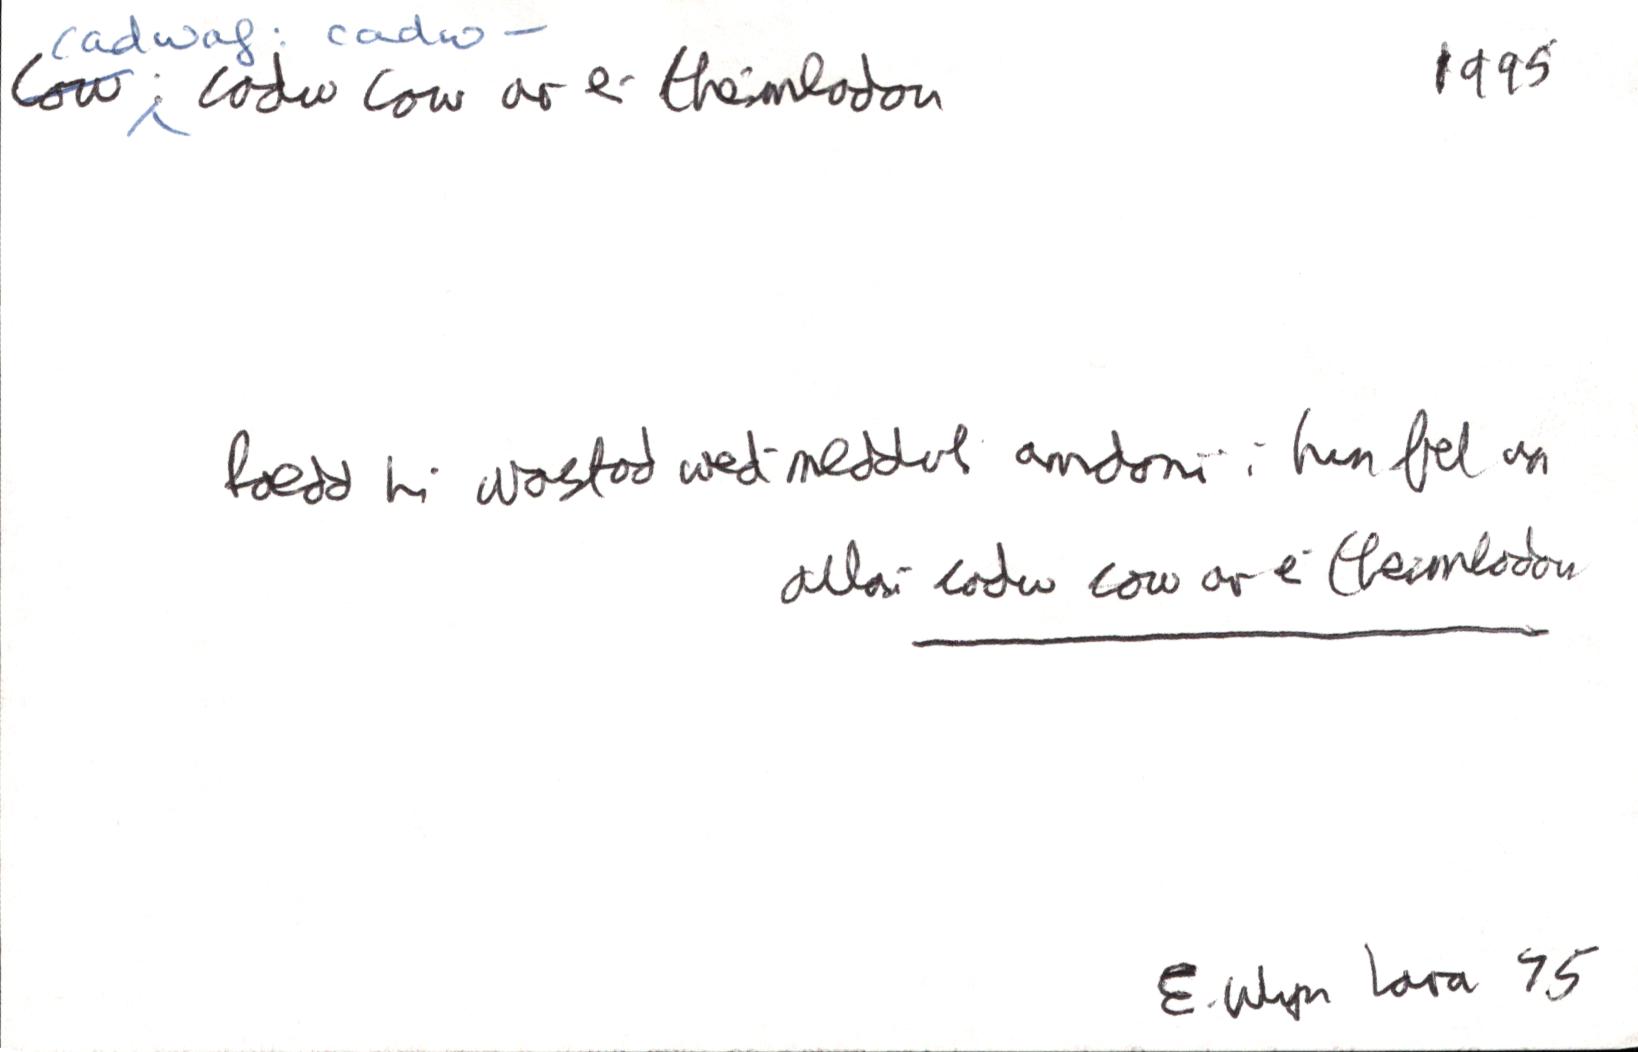 cadwaf: cadw –
Caw; cadw caw ar ei theimladau 1995
Roedd hi wastad wedi meddwl amdani i hun fel un
allai cadw caw ar ei theimladau
E. Wyn Lara 75